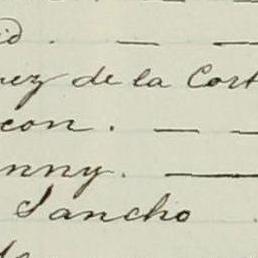 id. — —
nez de la Cort
con. — —
nny. —
Sancho